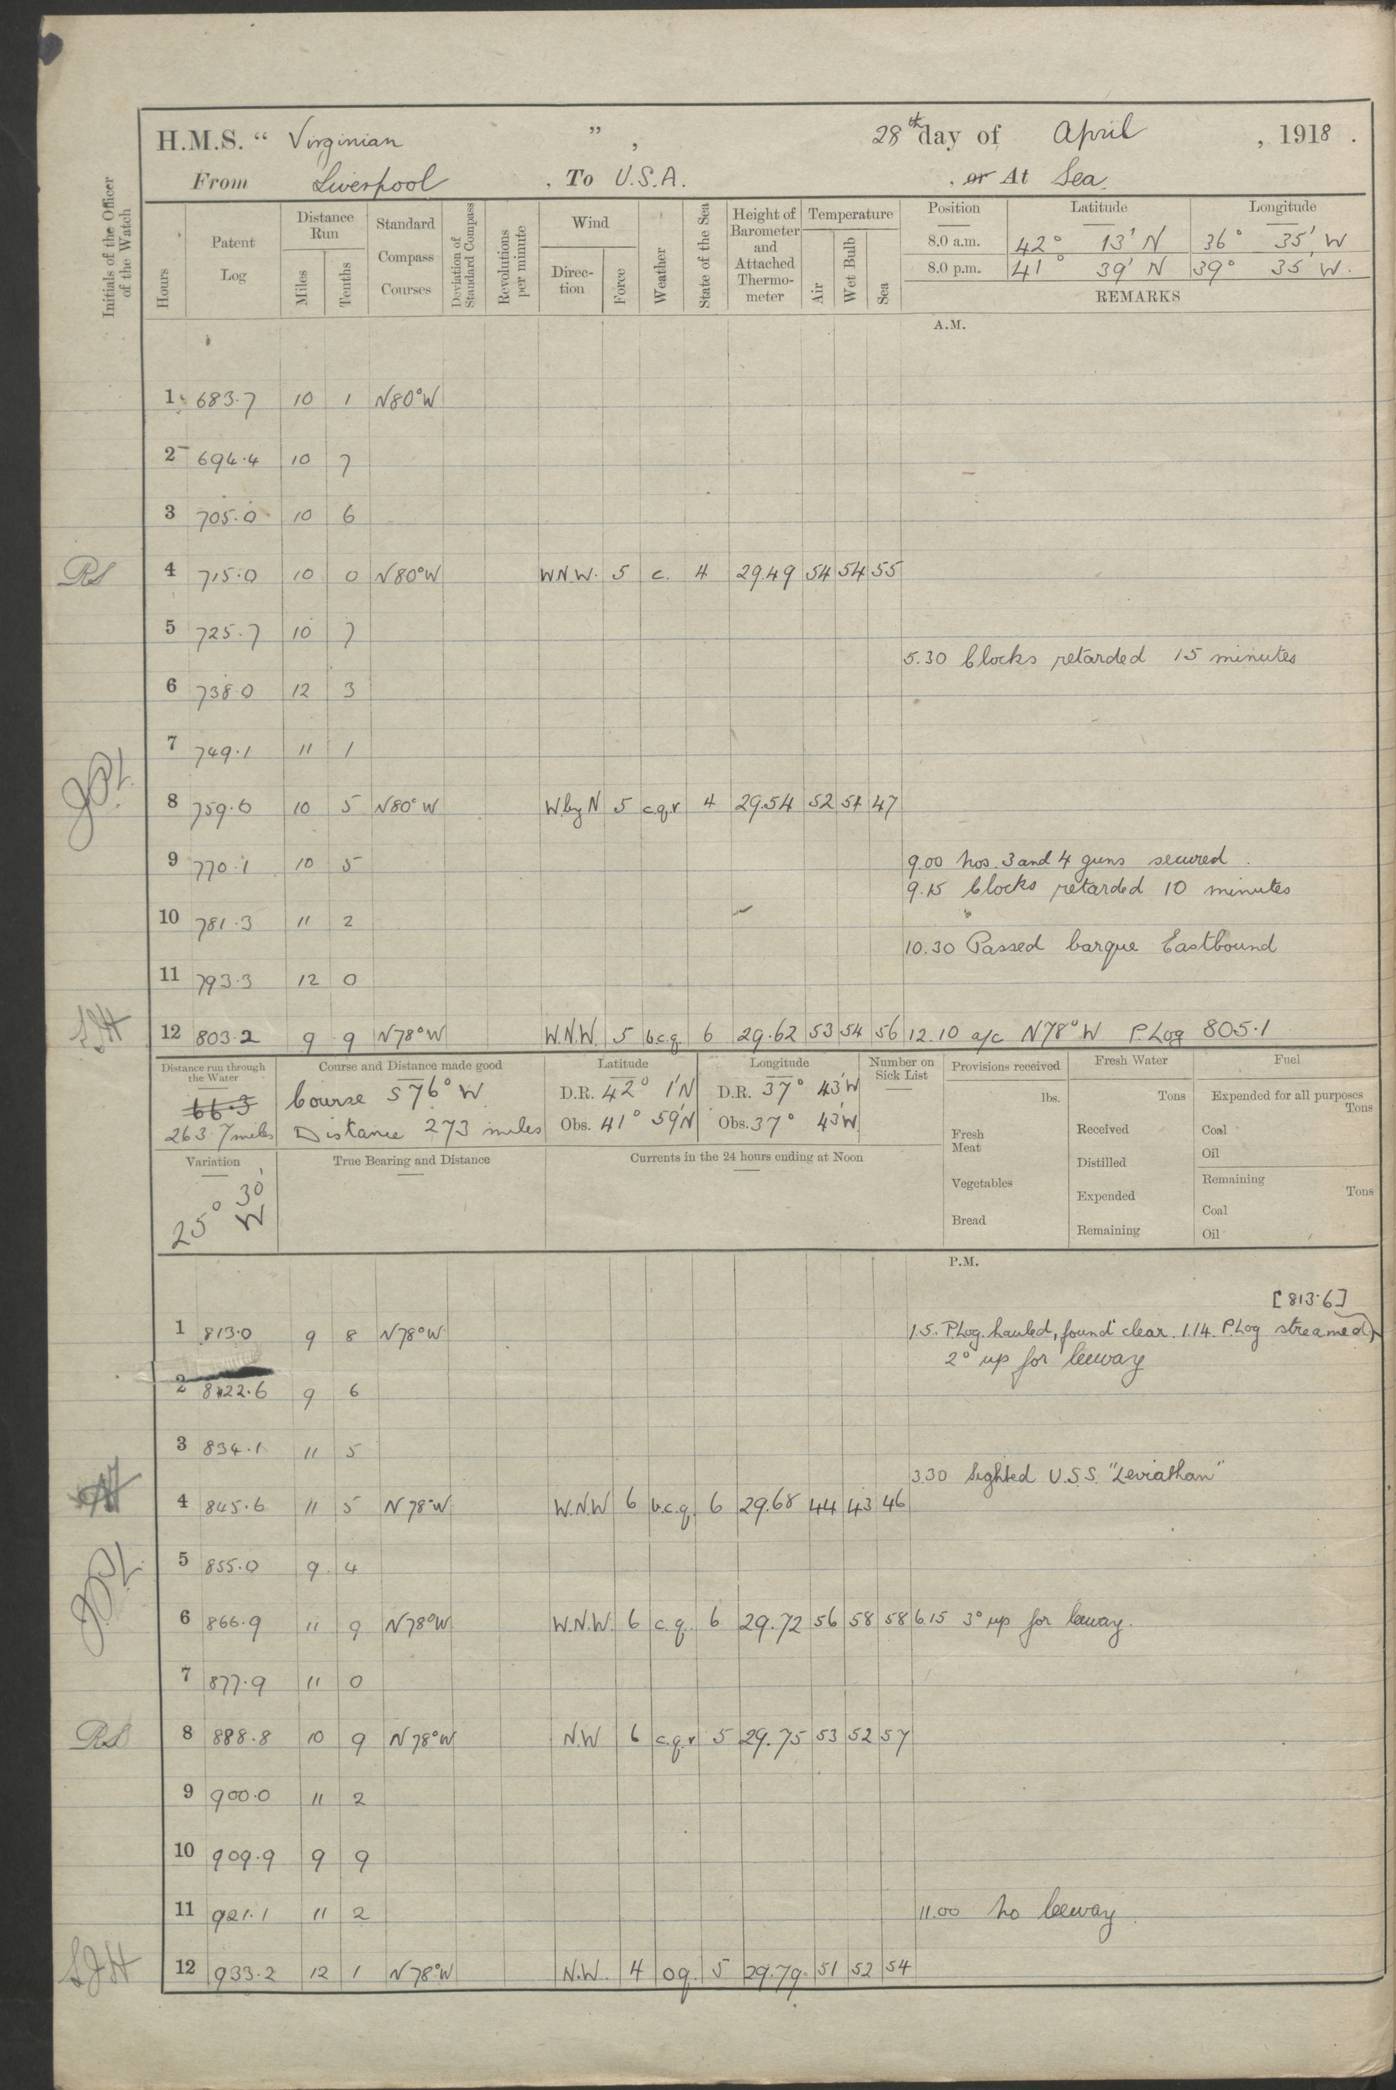 H.M.S. " Virginian ", 28th day of April, 1918.
From Liverpool, To U.S.A., or At Sea.
Initials of the Officer of the Watch
Hours Patent Log Distance Run Miles Tenths Standard Compass Courses Deviation of Standard Compass Revolutions per minute Wind Direction Force Weather State of the Sea Height of Barometer and Attached Thermometer Temperature Air Wet Bulb Sea Position Latitude Longitude
8.0 a.m. 42° 13' N 36° 35' W
8.0 p.m. 41° 39' N 39° 35' W.
REMARKS
A.M.
1 683.7 10 1 N80°W
2 694.4 10 7
3 705.0 10 6
RS 4 715.0 10 0 N80°W W.N.W. 5 c. 4 29.49 54 54 55
5 725.7 10 7
5.30 Clocks retarded 15 minutes
6 738.0 12 3
7 749.1 11 1
8 759.6 10 5 N80°W W.byN 5 c.q.r 4 29.54 52 51 47
9 770.1 10 5 9.00 Nos. 3 and 4 guns secured.
9.15 Clocks retarded 10 minutes
10 781.3 11 2
10.30 Passed barque Eastbound
11 793.3 12 0
SJH 12 803.2 9 9 N78°W W.N.W. 5 b.c.q. 6 29.62 53 54 56 12.10 a/c N78°W P.Log 805.1
Distance run through the Water Course and Distance made good Latitude Longitude Number on Sick List Provisions received Fresh Water Fuel
66.3 Course S76°W D.R. 42° 1'N D.R. 37° 43'W lbs. Tons Expended for all purposes Tons
263.7 miles Distance 273 miles Obs. 41° 59'N Obs. 37° 43'W Fresh Meat Received Coal
Oil
Variation True Bearing and Distance Currents in the 24 hours ending at Noon Distilled Remaining Tons
25° 30' W Vegetables Expended Coal
Bread Remaining Oil
P.M.
[813.6]
1 813.0 9 8 N78°W 1.5. P.Log. hauled, found clear. 1.14. P.Log streamed)
2° up for leeway
2 822.6 9 6
3 834.1 11 5
3.30 Sighted U.S.S. "Leviathan"
4 845.6 11 5 N78°W W.N.W 6 b.c.q. 6 29.68 44 43 46
5 855.0 9 4
6 866.9 11 9 N78°W W.N.W. 6 c.q. 6 29.72 56 58 58 6.15 3° up for leeway.
7 877.9 11 0
RS 8 888.8 10 9 N78°W N.W 6 c.q.r 5 29.75 53 52 57
9 900.0 11 2
10 909.9 9 9
11 921.1 11 2 11.00 No leeway.
SJH 12 933.2 12 1 N78°W N.W. 4 o.q. 5 29.79 51 52 54